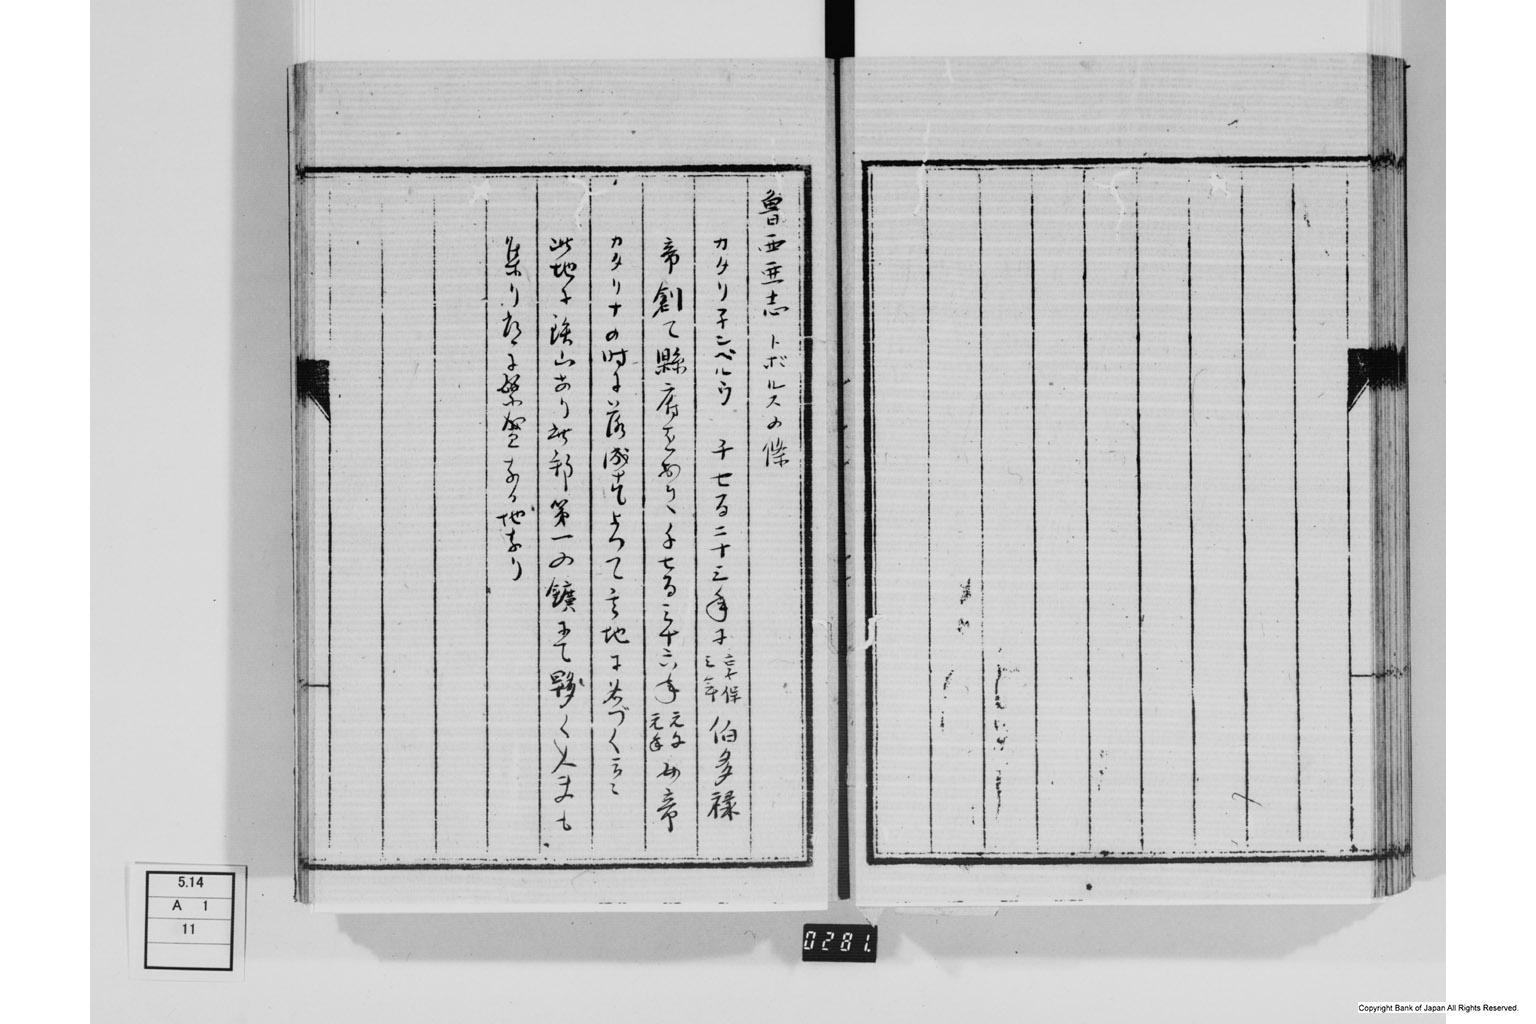 魯西亜志トボルスの條
カタリ子ンベルウ 千七百二十三年に 享保三年 伯多禄
帝創て縣府をおく 千七百三十六年 元文元年 女帝
カタリナの時に落成す よつて 地に名づくと云
此地に鉄山あり 第一の鑛にて夥く人まも
集り 繁盛なる地なり
5.14
A 1
11
0281.
Copyright Bank of Japan All Rights Reserved.